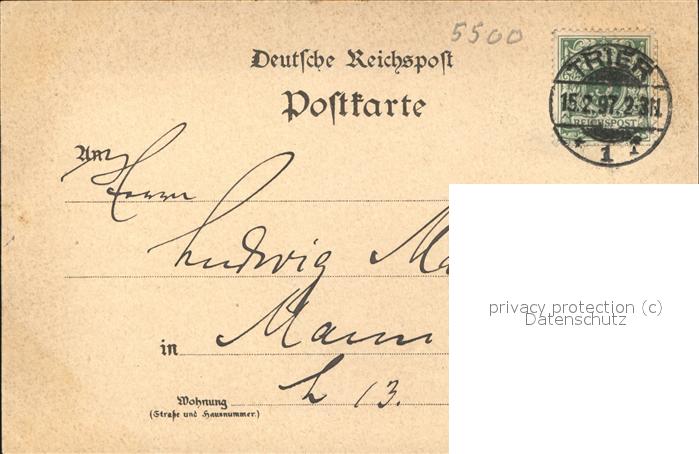 5500
Deutsche Reichspost
Postkarte
TRIER
15.2.97. 2-3N.
* 1 *
REICHSPOST
An
Herrn
Ludwig Ma
in Mann
L 13.
Wohnung
(Straße und Hausnummer.)
privacy protection (c)
Datenschutz